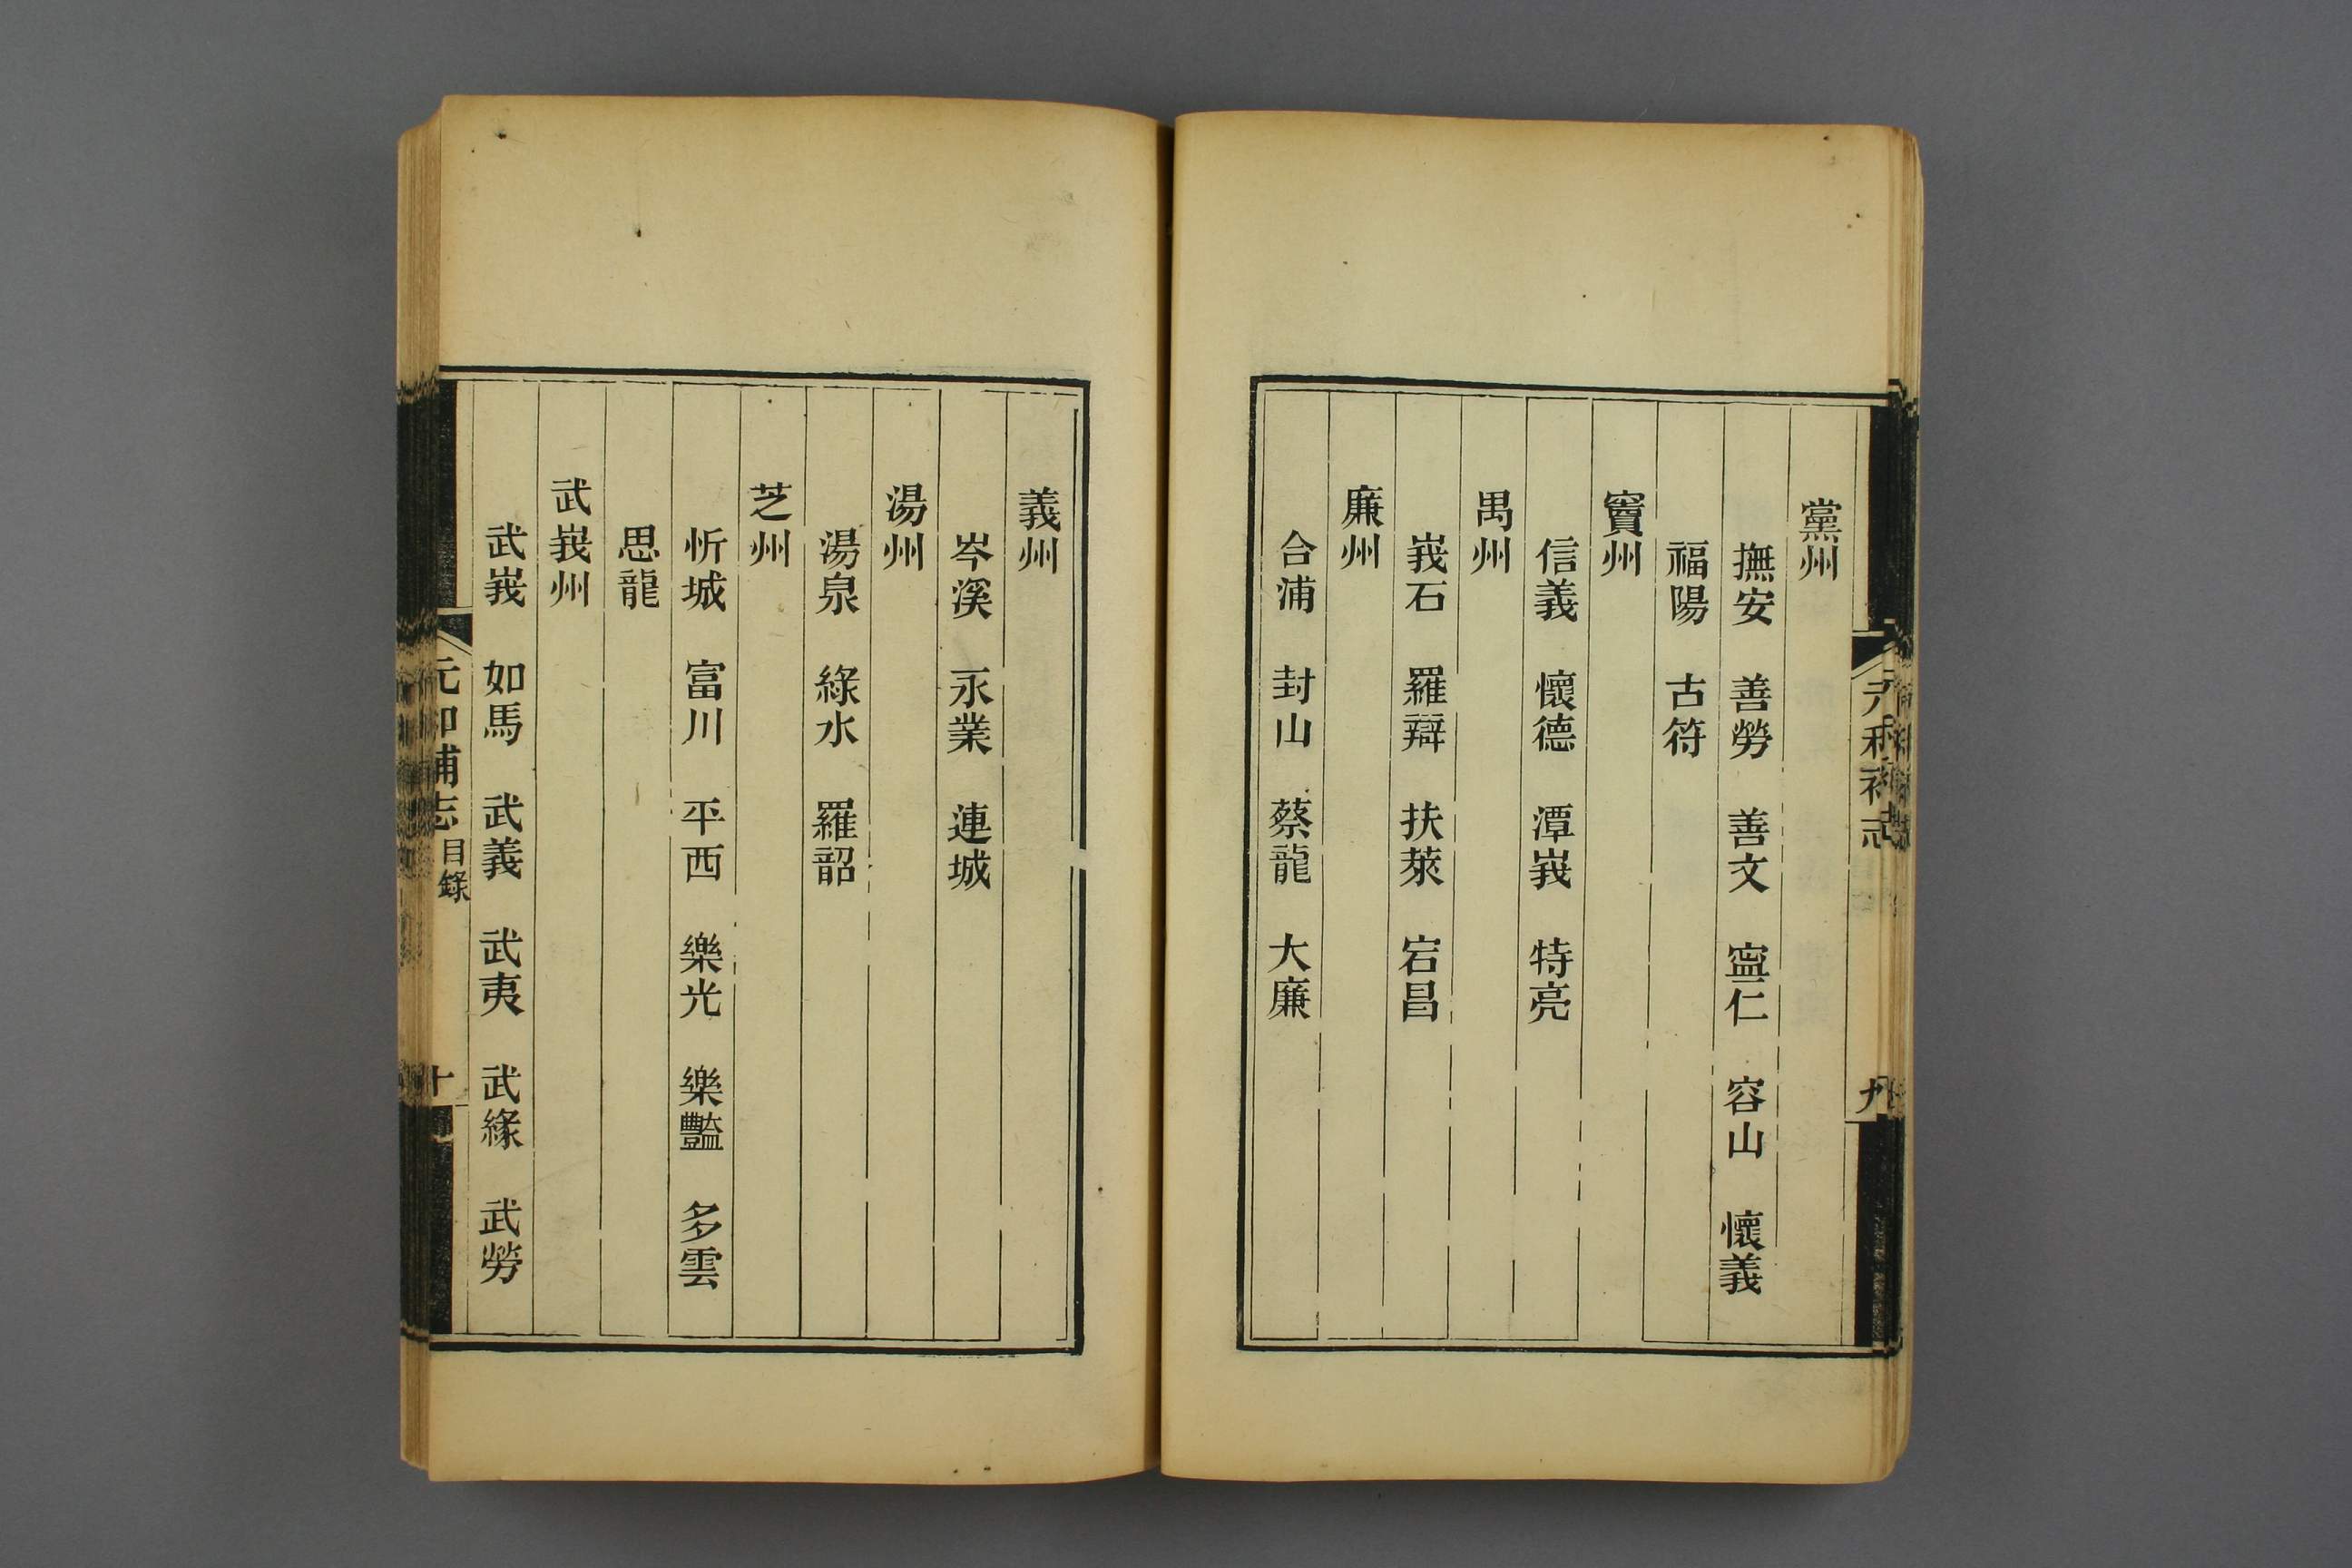 黨州
撫安 善勞 善文 寧仁 容山 懷義
福陽 古符
竇州
信義 懷德 潭峩 特亮
禺州
峩石 羅辯 扶萊 宕昌
廉州
合浦 封山 蔡龍 大廉
義州
岑溪 永業 連城
湯州
湯泉 綠水 羅韶
芝州
忻城 富川 平西 樂光 樂豔 多雲
思龍
武峩州
武峩 如馬 武義 武夷 武緣 武勞
元和補志 目錄 十
元和補志 九